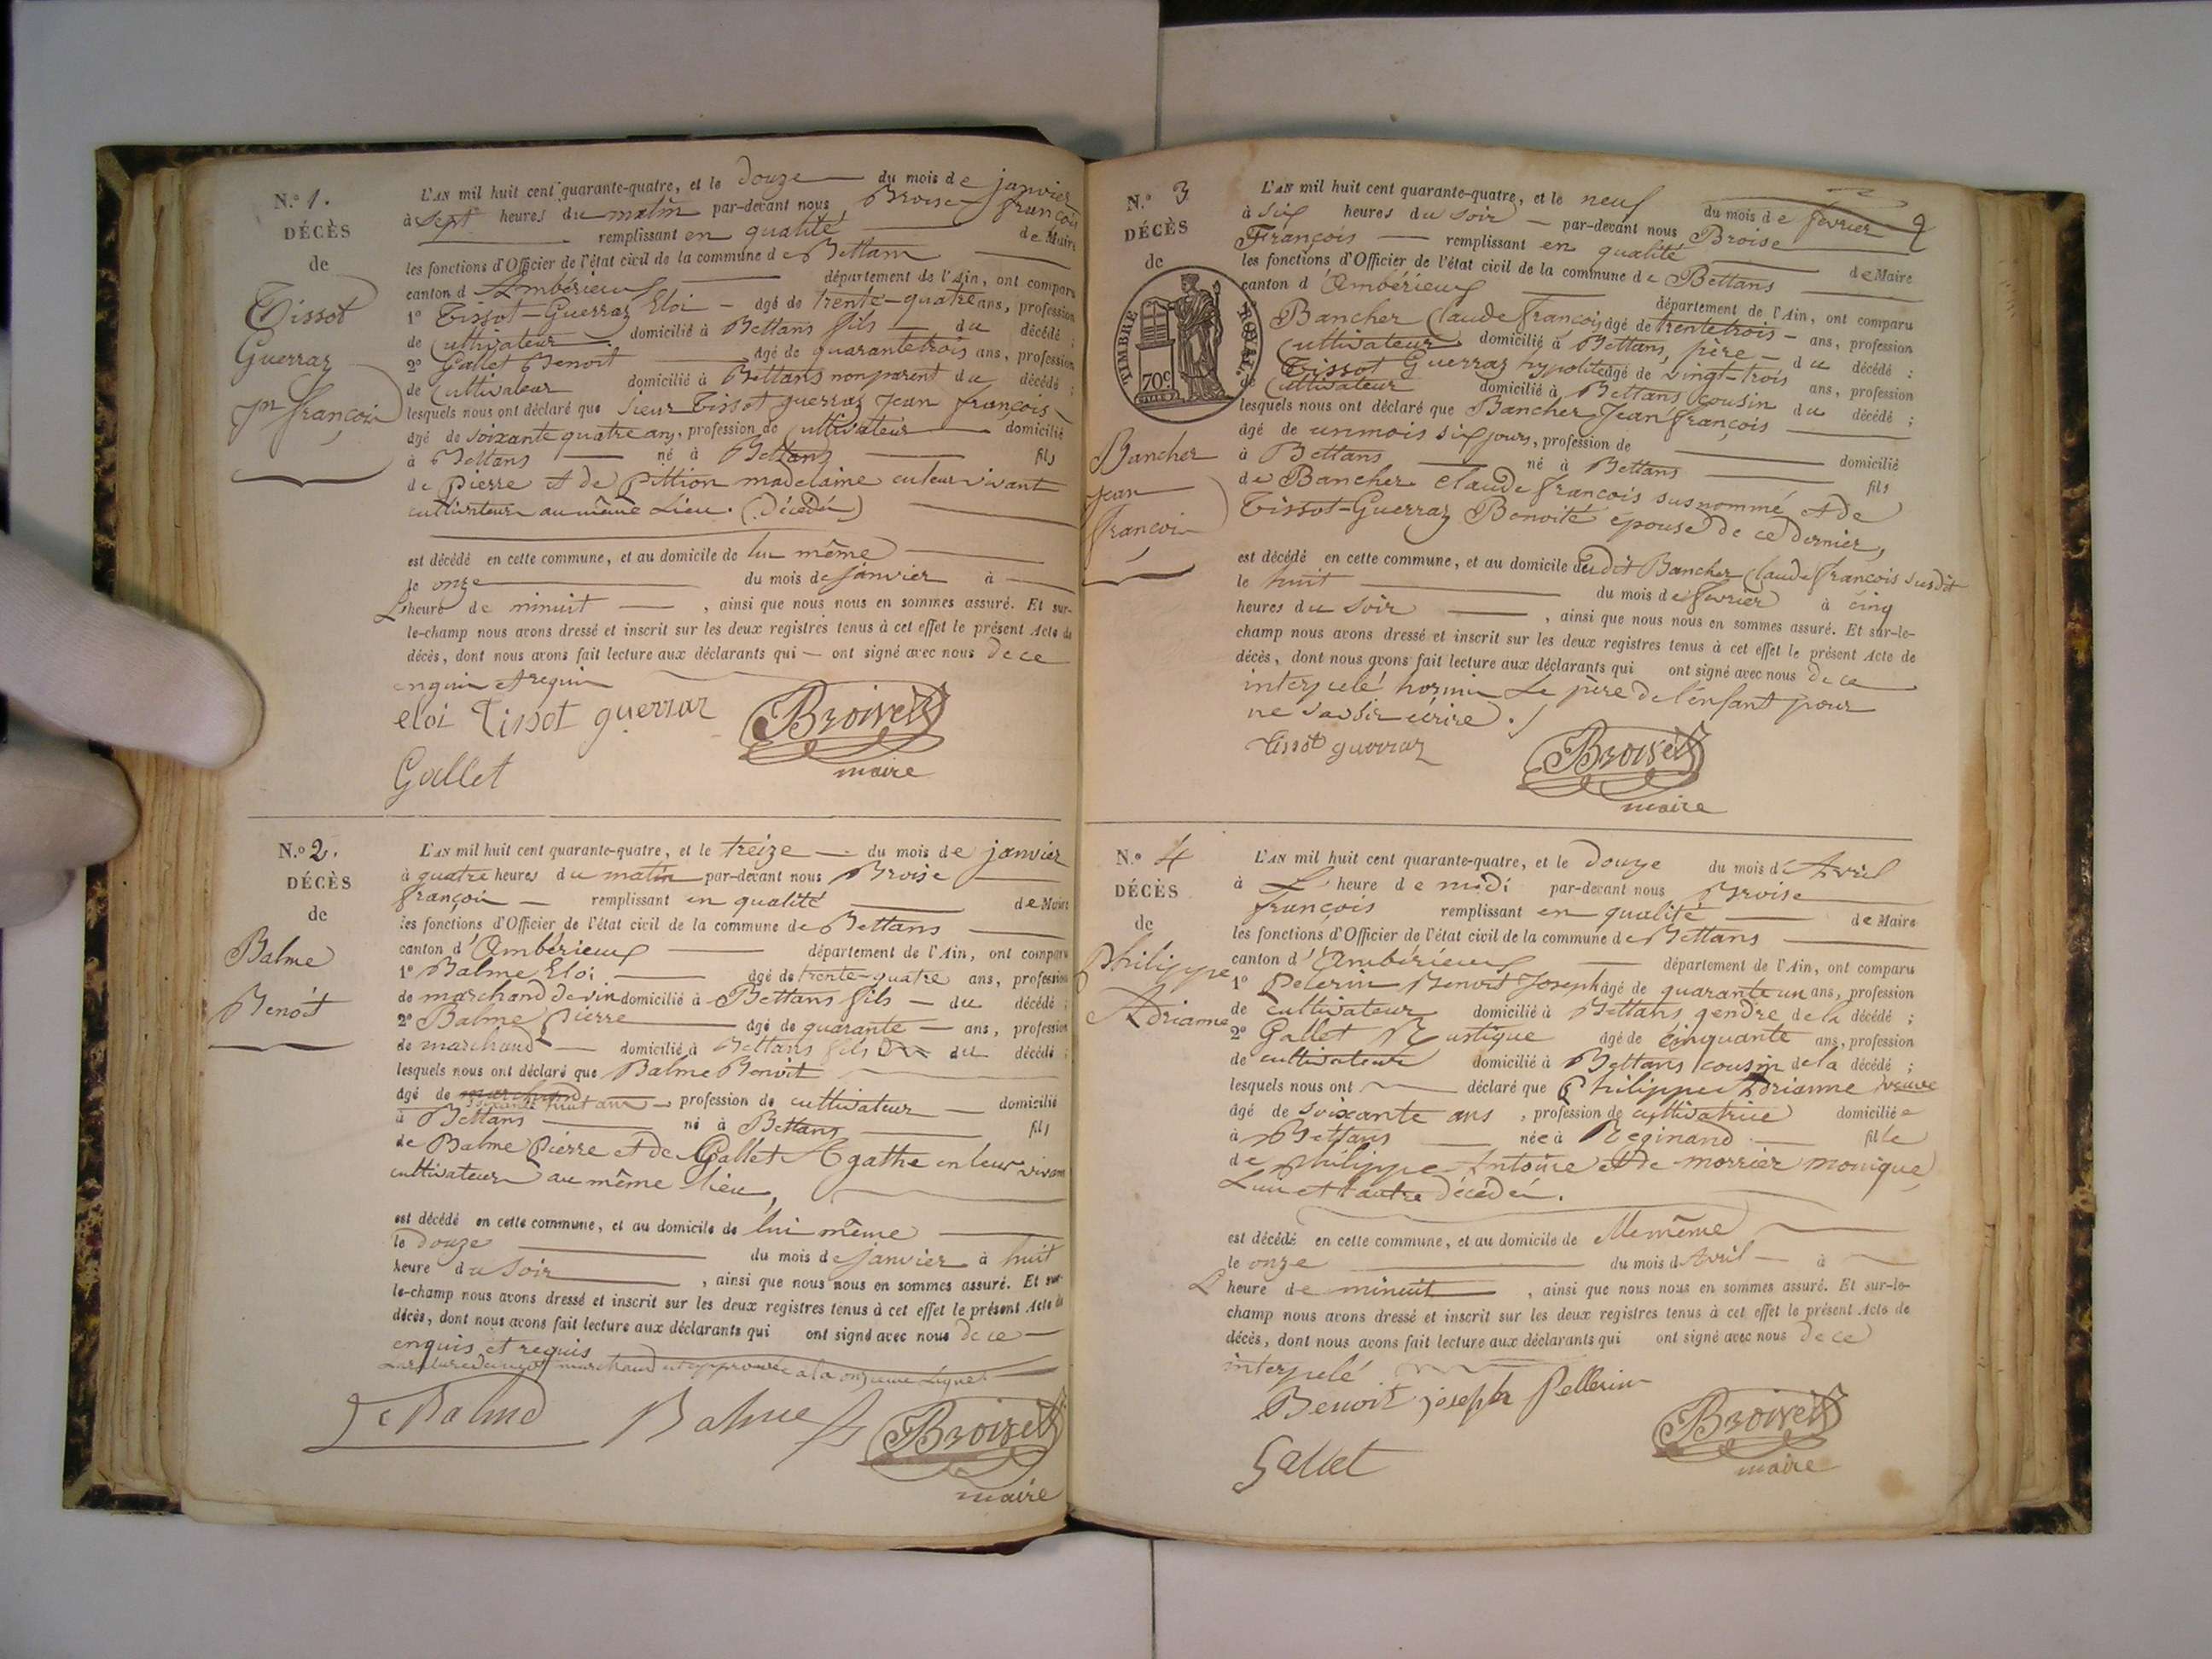 N.º 1.
DÉCÈS
de
Tissot
Guerraz
jn françois
L'AN mil huit cent quarante-quatre, et le douze du mois de janvier
à sept heures du matin par-devant nous Broise françois
remplissant en qualité de Maire
les fonctions d'Officier de l'état civil de la commune de Bettans
canton d'Ambérieux département de l'Ain, ont comparu
1º Tissot-Guerraz Eloi âgé de trente-quatre ans, profession
de Cultivateur domicilié à Bettans fils du décédé ;
2º Gallet Benoit âgé de quarante trois ans, profession
de Cultivateur domicilié à Bettans non parent du décédé ;
lesquels nous ont déclaré que Sieur Tissot guerraz Jean françois
âgé de soixante quatre ans, profession de Cultivateur domicilié
à Bettans né à Bettans fils
de Pierre et de Pittion madelaine en leur vivant
cultivateurs au même Lieu. (Décédés)
est décédé en cette commune, et au domicile de lui même
le onze du mois de janvier à
L'heure de minuit , ainsi que nous nous en sommes assuré. Et sur-
le-champ nous avons dressé et inscrit sur les deux registres tenus à cet effet le présent Acte de
décès, dont nous avons fait lecture aux déclarants qui ont signé avec nous de ce
enquis et requis
eloi Tissot guerraz Broise
maire
Gallet
N.º 2.
DÉCÈS
de
Balme
Benoit
L'AN mil huit cent quarante-quatre, et le treize du mois de janvier
à quatre heures du matin par-devant nous Broise
françois remplissant en qualité de Maire
les fonctions d'Officier de l'état civil de la commune de Bettans
canton d'Ambérieux département de l'Ain, ont comparu
1º Balme Eloi âgé de trente-quatre ans, profession
de marchand de vin domicilié à Bettans fils du décédé ;
2º Balme Pierre âgé de quarante ans, profession
de marchand domicilié à Bettans fils du décédé ;
lesquels nous ont déclaré que Balme Benoit
âgé de marchand soixante huit ans profession de cultivateur domicilié
à Bettans né à Bettans fils
de Balme Pierre et de Gallet Agathe en leur vivant
cultivateurs au même lieu,
est décédé en cette commune, et au domicile de lui même
le douze du mois de janvier à huit
heure du Soir , ainsi que nous nous en sommes assuré. Et sur-
le-champ nous avons dressé et inscrit sur les deux registres tenus à cet effet le présent Acte de
décès, dont nous avons fait lecture aux déclarants qui ont signé avec nous de ce
enquis et requis
La rature du mot marchand est approuvée à la onzième Ligne
Balme Balme Broise
maire
N.º 3
DÉCÈS
de
TIMBRE ROYAL
70c
Bancher
Jean
françois
2
L'AN mil huit cent quarante-quatre, et le neuf du mois de fevrier
à six heures du soir par-devant nous Broise
François remplissant en qualité de Maire
les fonctions d'Officier de l'état civil de la commune de Bettans
canton d'Ambérieux département de l'Ain, ont comparu
Bancher Claude françois âgé de trente trois ans, profession
Cultivateur domicilié à Bettans, père du décédé ;
Tissot Guerraz hypolite âgé de vingt-trois ans, profession
de Cultivateur domicilié à Bettans cousin du décédé ;
lesquels nous ont déclaré que Bancher Jean françois
âgé de un mois six jours, profession de domicilié
à Bettans né à Bettans fils
de Bancher Claude françois susnommé et de
Tissot-Guerraz Benoité épouse de ce dernier,
est décédé en cette commune, et au domicile dudit Bancher Claude françois susdit
le huit du mois de fevrier à cinq
heures du soir , ainsi que nous nous en sommes assuré. Et sur-le-
champ nous avons dressé et inscrit sur les deux registres tenus à cet effet le présent Acte de
décès, dont nous avons fait lecture aux déclarants qui ont signé avec nous de ce
interpelé hormis Le père de l'enfant pour
ne savoir écrire.
tissot guerraz Broise
maire
N.º 4
DÉCÈS
de
Philippe
Adrianne
L'AN mil huit cent quarante-quatre, et le Douze du mois d'Avril
à L'heure de midi par-devant nous Broise
françois remplissant en qualité de Maire
les fonctions d'Officier de l'état civil de la commune de Bettans
canton d'Ambérieux département de l'Ain, ont comparu
1º Pelerin Benoit Joseph âgé de quarante un ans, profession
de cultivateur domicilié à Bettans gendre de la décédé ;
2º Gallet Rustique âgé de cinquante ans, profession
de cultivateur domicilié à Bettans cousin de la décédé ;
lesquels nous ont déclaré que Philippe Adrianne veuve
âgé de soixante ans , profession de cultivatrice domiciliée
à Bettans née à Reginand fille
de philippe Antoine et de morrier monique
L'un et l'autre décédés.
est décédé en cette commune, et au domicile de Elle même
le onze du mois d'Avril à
L'heure de minuit , ainsi que nous nous en sommes assuré. Et sur-le-
champ nous avons dressé et inscrit sur les deux registres tenus à cet effet le présent Acte de
décès, dont nous avons fait lecture aux déclarants qui ont signé avec nous de ce
interpelé
Benoit joseph Pellerin Broise
maire
Gallet